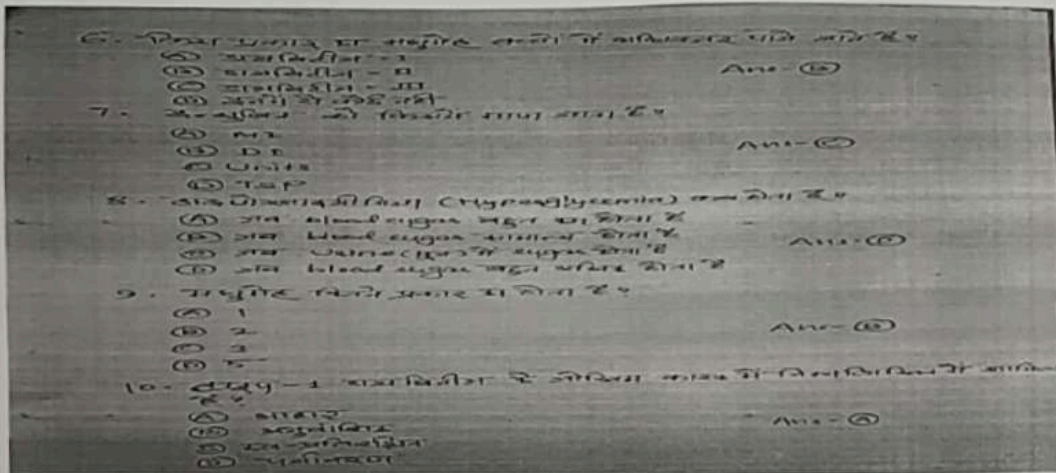 6. किस प्रकार का मधुमेह बच्चों में अधिकतर पाये जाते है?
(A) डायबिटीज - I
(B) डायबिटीज - II
Ans - (B)
(C) डायबिटीज - III
(D) इनमें से कोई नहीं
7. इन्सुलिन को किसमें मापा जाता है?
(A) ML
(B) DL
Ans - (C)
(C) Units
(D) TSP
8. (Hyperglycemia) कब होता है?
(A) जब blood sugar बहुत कम होता है
(B) जब blood sugar सामान्य होता है
(C) जब Urine (मूत्र) में sugar होता है
(D) जब blood sugar बहुत अधिक होता है
9. मधुमेह कितने प्रकार का होता है?
(A) 1
(B) 2
(C) 3
(D) 5
10. - 1 डायबिटीज के जोखिम कारक में निम्नलिखित में
है?
(A) आहार
(B) अनुवांशिक
Ans - (A)
(D) पर्यावरण